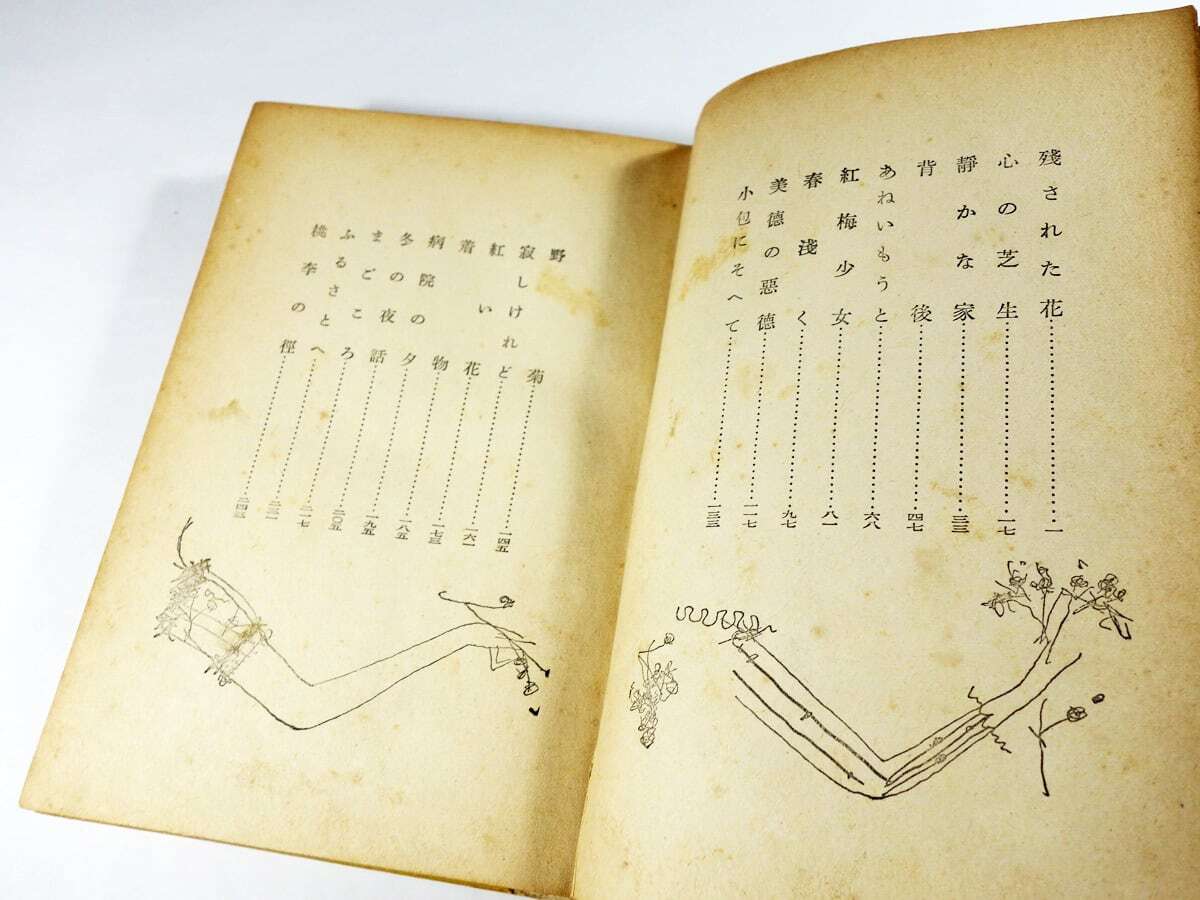 殘された花……………一
心の芝生……………一七
靜かな家……………三三
背後……………四七
あねいもうと……………六八
紅梅少女……………八一
春淺く……………九七
美德の惡德……………一一七
小包にそへて……………一三三
野菊……………一四五
寂しけれど……………一六一
紅い花……………一七三
着物……………一八五
病院の夕……………一九五
冬の夜話……………二〇五
まごころ……………二一七
ふるさとへ……………二三一
桃李の徑……………二四三